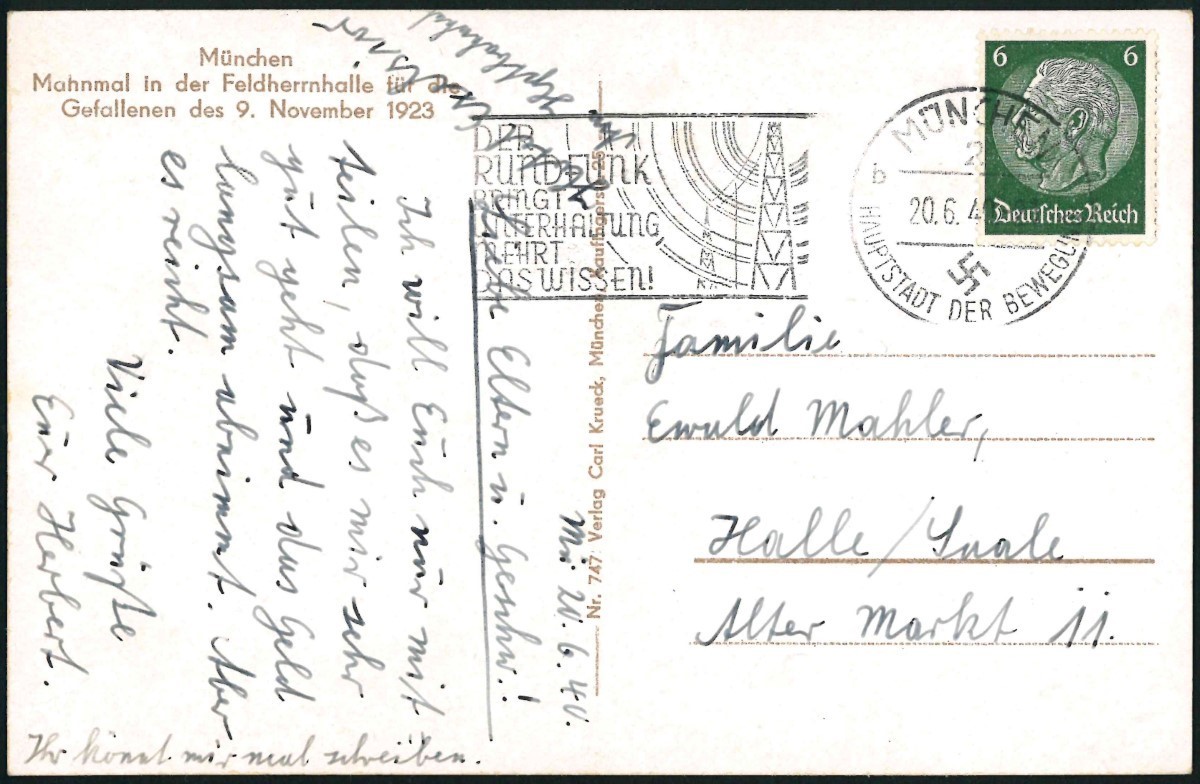 München
Mahnmal in der Feldherrnhalle für die
Gefallenen des 9. November 1923
DER
RUNDFUNK
BRINGT
UNTERHALTUNG
LEHRT
DAS WISSEN!
MÜNCHEN
2
b
20.6.40
HAUPTSTADT DER BEWEGUNG
6 6
Deutsches Reich
Nr. 747: Verlag Carl Krueck, München, Kaufingerstraße
Mü. 20.6.40.
Liebe Eltern u. Geschw.!
Ich will Euch nur mit
teilen, daß es mir sehr
gut geht und das Geld
langsam abnimmt. Aber
es reicht.
Viele Grüße
Euer Herbert.
Ihr könnt mir mal schreiben.
Familie
Ewald Mahler,
Halle/Saale
Alter Markt 11.